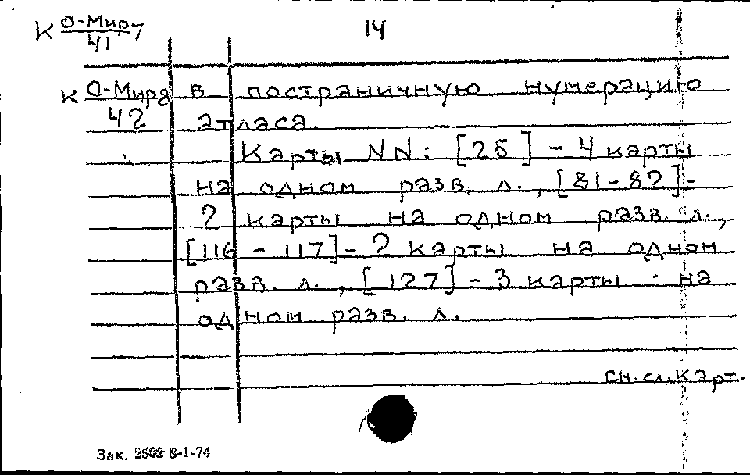 К О-Мир/41 14
К О-Мира/42 в постраничную нумерацию
атласа.
Карты NN: [25] - 4 карты
на одном разв. л., [81-82] -
2 карты на одном разв. л.,
[116 - 117] - 2 карты на одном
разв. л., [127] - 3 карты на
одном разв. л.
см. сл. карт.
Зак. 8-1-74